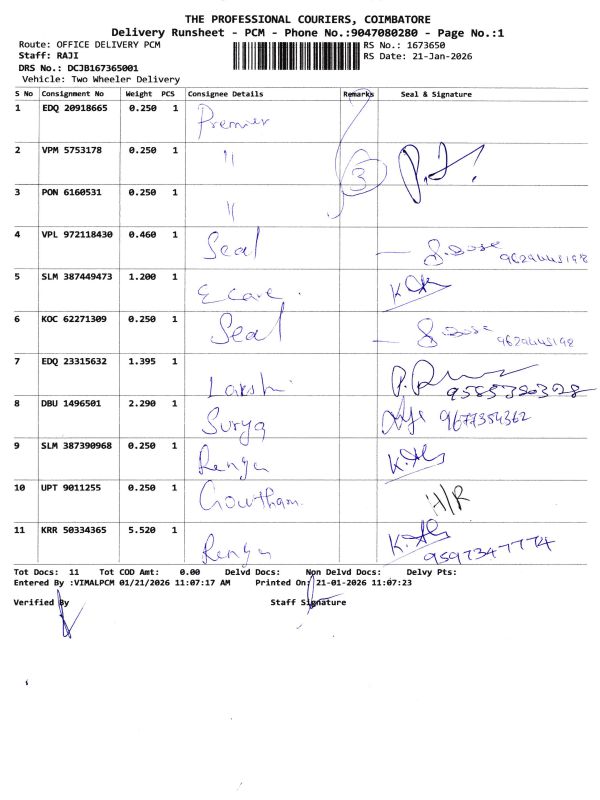 THE PROFESSIONAL COURIERS, COIMBATORE
Delivery Runsheet - PCM - Phone No.:9047080280 - Page No.:1
Route: OFFICE DELIVERY PCM RS No.: 1673650
Staff: RAJI RS Date: 21-Jan-2026
DRS No.: DCJB167365001
Vehicle: Two Wheeler Delivery
S No Consignment No Weight PCS Consignee Details Remarks Seal & Signature
1 EDQ 20918665 0.250 1 Premier
2 VPM 5753178 0.250 1 " 3
3 PON 6160531 0.250 1 "
4 VPL 972118430 0.460 1 Seal 9629445198
5 SLM 387449473 1.200 1 Ecare.
6 KOC 62271309 0.250 1 Seal 9629445198
7 EDQ 23315632 1.395 1 Lakshi
8 DBU 1496501 2.290 1 Surya 9677354362
9 SLM 387390968 0.250 1 Rengu
10 UPT 9011255 0.250 1 Gowtham. H/R
11 KRR 50334365 5.520 1 Rengu 9597347774
Tot Docs: 11 Tot COD Amt: 0.00 Delvd Docs: Non Delvd Docs: Delvy Pts:
Entered By :VIMALPCM 01/21/2026 11:07:17 AM Printed On: 21-01-2026 11:07:23
Verified By Staff Signature